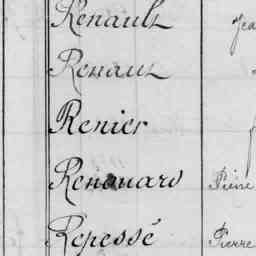 Renault
Renaux
Renier
Renouard Pierre
Repessé Pierre